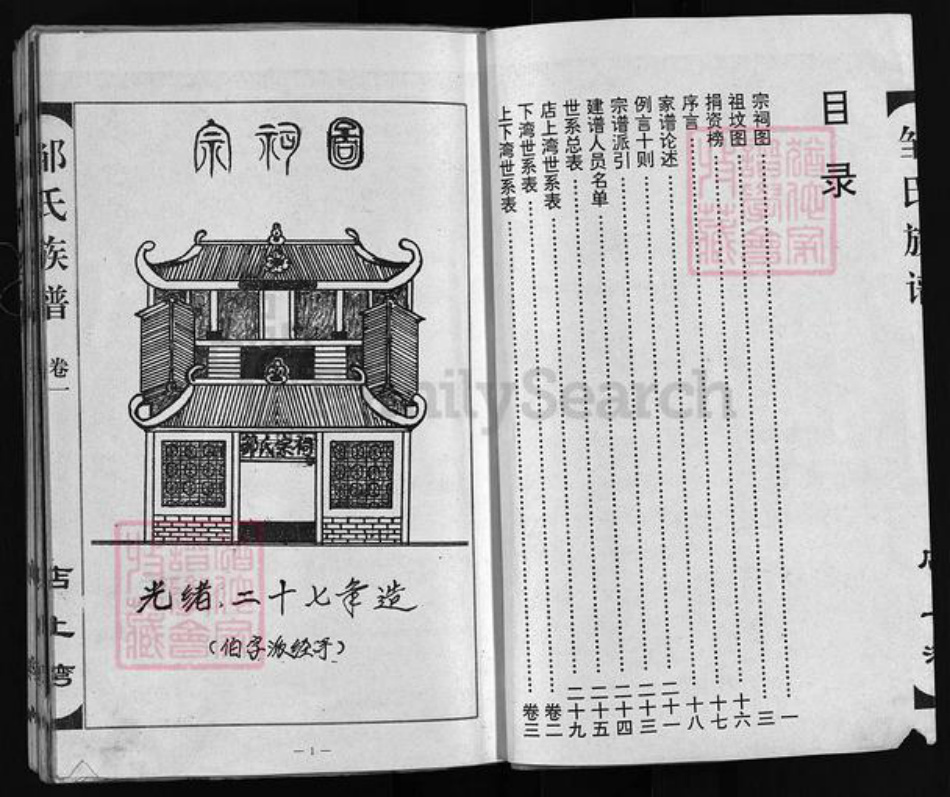 目录
宗祠图……一
祖坟图……三
捐资榜……十六
序言……十七
家谱论述……十八
例言十则……二十一
宗谱派引……二十三
建谱人员名单……二十四
世系总表……二十五
店上湾世系表……二十九
下湾世系表……卷二
上下湾世系表……卷三
猶他家
譜學會
收藏
宗祠圖
邹氏宗祠
光绪.二十七年造
(伯字派经手)
猶他家
譜學會
收藏
— 1 —
邹氏族谱 卷一
店上湾
FamilySearch